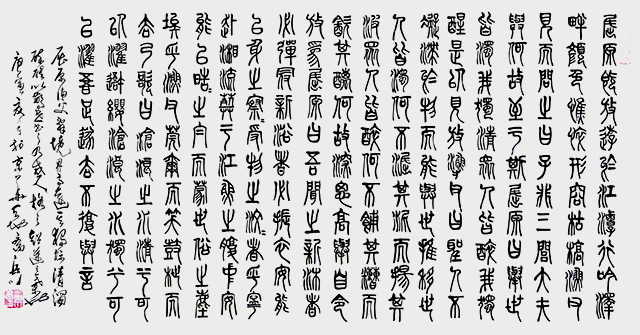 屈原既放遊於江潭行吟澤
畔顏色憔悴形容枯槁漁父
見而問之曰子非三閭大夫
與何故至於斯屈原曰舉世
皆濁我獨清眾人皆醉我獨
醒是以見放漁父曰聖人不
凝滯於物而能與世推移世
人皆濁何不淈其泥而揚其
波眾人皆醉何不餔其糟而
歠其醨何故深思高舉自令
放為屈原曰吾聞之新沐者
必彈冠新浴者必振衣安能
以身之察察受物之汶汶者乎寧
赴湘流葬於江魚之腹中安
能以皓皓之白而蒙世俗之塵
埃乎漁父莞爾而笑鼓枻而
去乃歌曰滄浪之水清兮可
以濯吾纓滄浪之水濁兮可
以濯吾足遂去不復與言